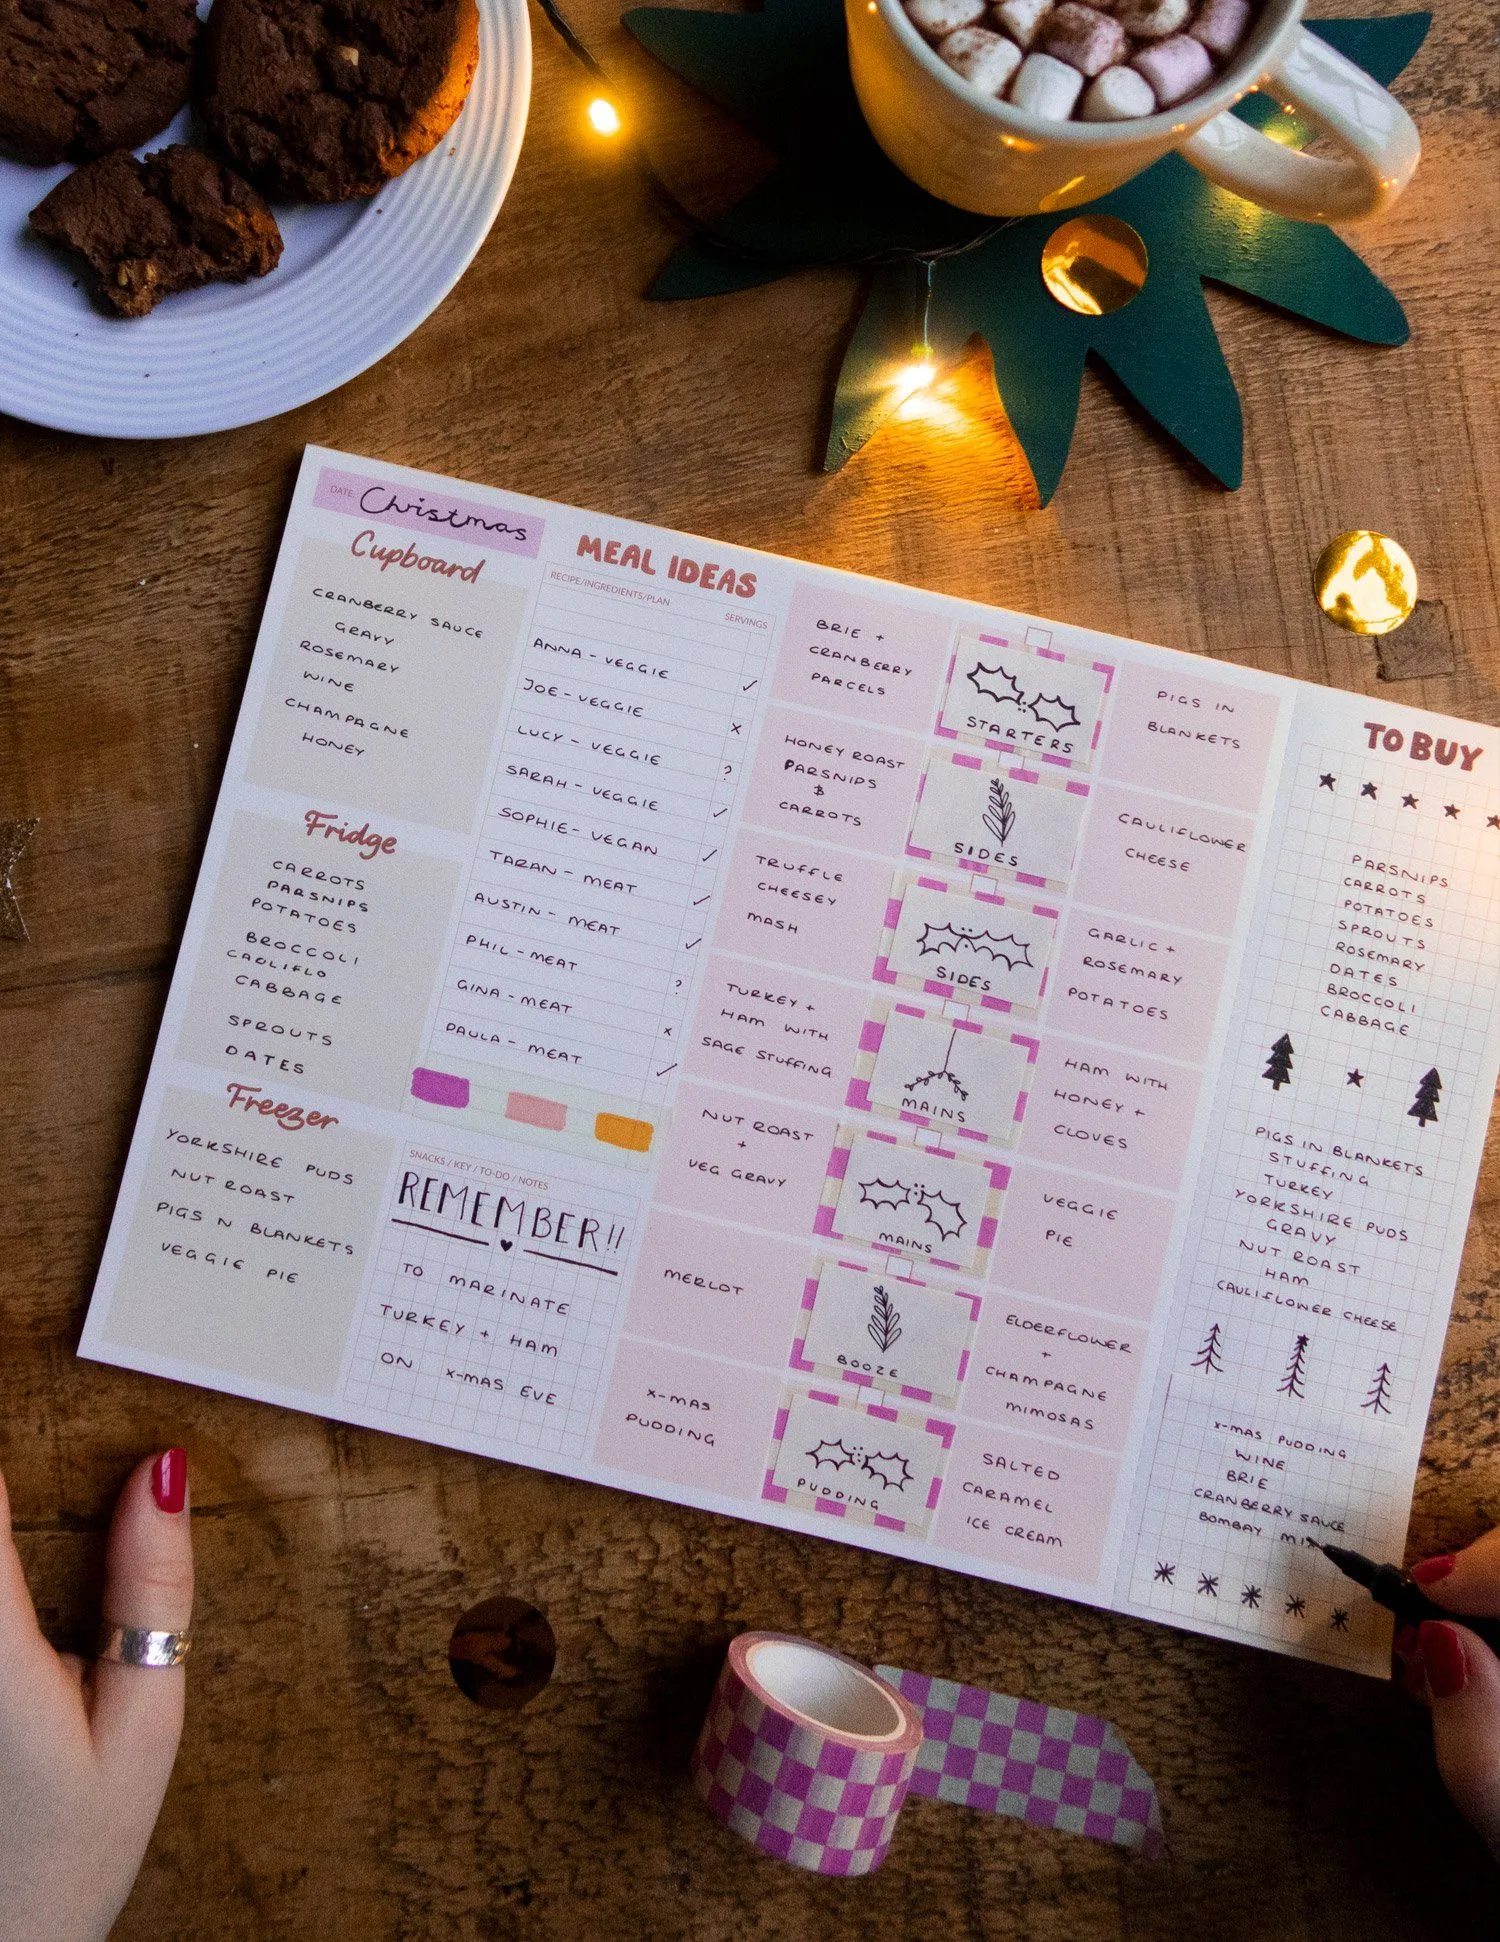 DATE: Christmas
Cupboard
CRANBERRY SAUCE
GRAVY
ROSEMARY
WINE
CHAMPAGNE
HONEY
Fridge
CARROTS
PARSNIPS
POTATOES
BROCCOLI
CAULIFLO
CABBAGE
SPROUTS
DATES
Freezer
YORKSHIRE PUDS
NUT ROAST
PIGS N BLANKETS
VEGGIE PIE
MEAL IDEAS
RECIPE/INGREDIENTS/PLAN
SERVINGS
ANNA - VEGGIE ✓
JOE - VEGGIE x
LUCY - VEGGIE ?
SARAH - VEGGIE ✓
SOPHIE - VEGAN ✓
TARAN - MEAT ✓
AUSTIN - MEAT ✓
PHIL - MEAT ?
GINA - MEAT x
PAULA - MEAT ✓
SNACKS / KEY / TO-DO / NOTES
REMEMBER!!
TO MARINATE
TURKEY + HAM
ON X-MAS EVE
BRIE +
CRANBERRY
PARCELS
STARTERS
PIGS IN
BLANKETS
HONEY ROAST
PARSNIPS
&
CARROTS
SIDES
CAULIFLOWER
CHEESE
TRUFFLE
CHEESEY
MASH
SIDES
GARLIC +
ROSEMARY
POTATOES
TURKEY +
HAM WITH
SAGE STUFFING
MAINS
HAM WITH
HONEY +
CLOVES
NUT ROAST
+
VEG GRAVY
MAINS
VEGGIE
PIE
MERLOT
BOOZE
ELDERFLOWER
+
CHAMPAGNE
MIMOSAS
X-MAS
PUDDING
PUDDING
SALTED
CARAMEL
ICE CREAM
TO BUY
PARSNIPS
CARROTS
POTATOES
SPROUTS
ROSEMARY
DATES
BROCCOLI
CABBAGE
PIGS IN BLANKETS
STUFFING
TURKEY
YORKSHIRE PUDS
GRAVY
NUT ROAST
HAM
CAULIFLOWER CHEESE
X-MAS PUDDING
WINE
BRIE
CRANBERRY SAUCE
BOMBAY MIX